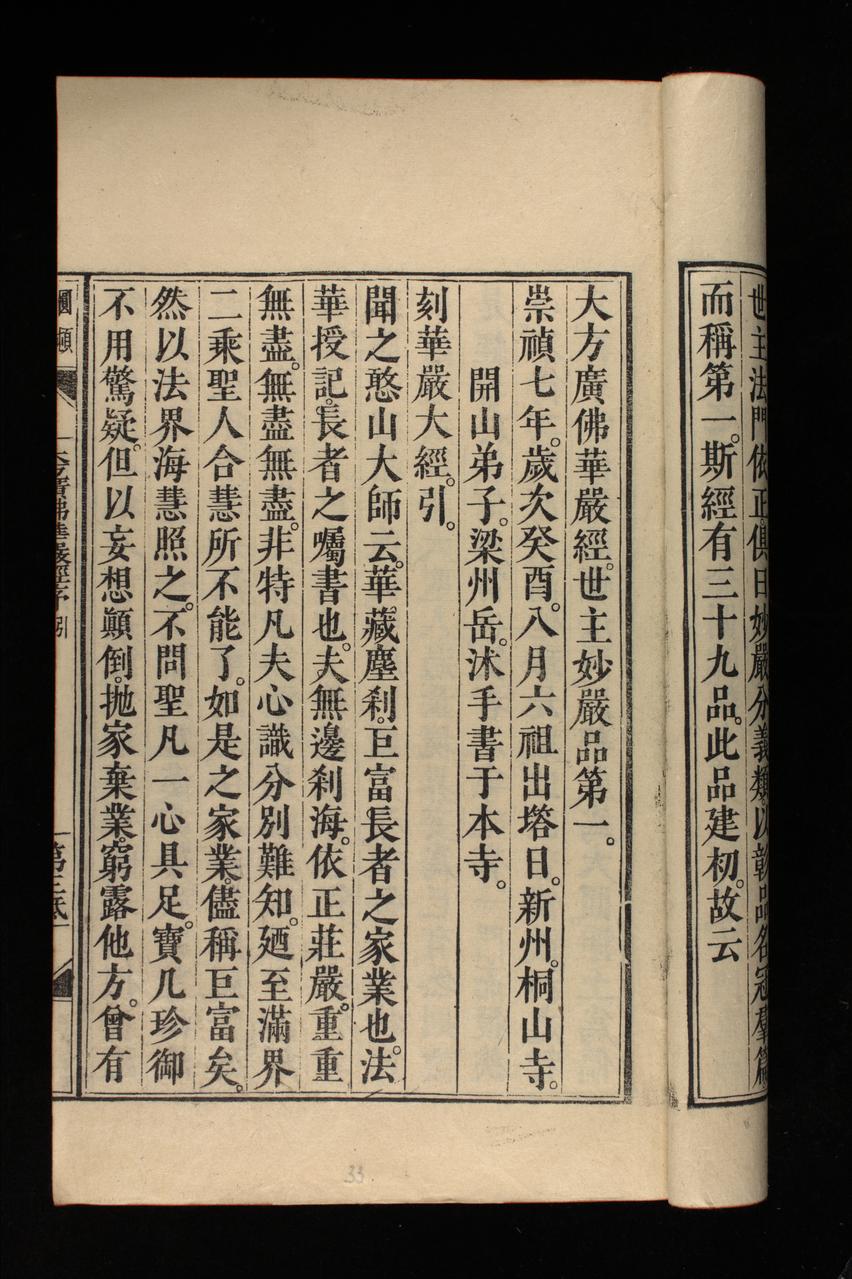 世主法門依正俱曰妙嚴分義類以彰品名冠羣篇
而稱第一。斯經有三十九品。此品建初。故云
大方廣佛華嚴經。世主妙嚴品第一。
崇禎七年。歲次癸酉。八月六祖出塔日。新州。桐山寺。
開山弟子。梁州岳。沐手書于本寺。
刻華嚴大經。引。
聞之憨山大師云。華藏塵剎。巨富長者之家業也。法
華授記。長者之囑書也。夫無邊剎海。依正莊嚴。重重
無盡。無盡無盡。非特凡夫心識分別難知。廼至滿界
二乘聖人合慧所不能了。如是之家業。儘稱巨富矣。
然以法界海慧照之。不問聖凡一心具足。寶几珍御
不用驚疑。但以妄想顛倒。拋家棄業。窮露他方。曾有
圓頓 大方廣佛華嚴經序 引
33